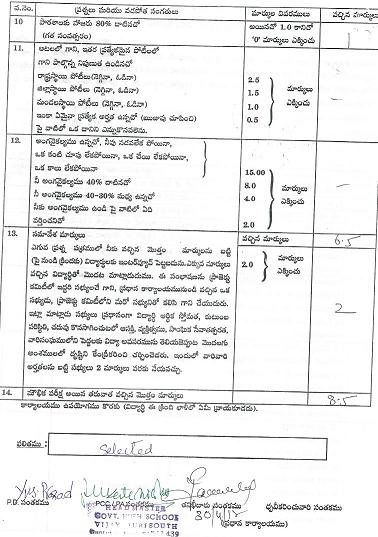 వ.నెం. ప్రశ్నలు మరియు వడపోత సంగతులు మార్కుల వివరములు వచ్చిన మార్కులు
10 పాఠశాలకు హాజరు 80% దాటినదో అయినదో 1.0 కానిదో
(గత సంవత్సరం) '0' మార్కులు ఎక్కించు
11. ఆటలలో గాని, ఇతర ప్రత్యేకమైన పోటీలలో
గాని పాల్గొన్న నిపుణుత ఉండినచో
రాష్ట్రస్థాయి పోటీలు(నెగ్గినా, ఓడినా) 2.5
జిల్లాస్థాయి పోటీలు(నెగ్గినా, ఓడినా) 1.5 మార్కులు
మండలస్థాయి పోటీలు(నెగ్గినా, ఓడినా) 1.0 ఎక్కించు
ఇంకా ఏమైనా ప్రత్యేక అర్హత ఉన్నచో (ఋజువు చూపించి) 0.5
పై వాటిలో ఒక దానిని ఎన్నుకొనవలెను.
12. అంగవైకల్యము ఉన్నచో, నీవు నడవలేక పోయినా,
ఒక కంటి చూపు లేకపోయినా, ఒక చేయి లేకపోయినా,
ఒక కాలు లేకపోయినా 15.00
నీ అంగవైకల్యము 40% దాటినచో 8.0 మార్కులు
నీ అంగవైకల్యము 40-30% మధ్య ఉన్నచో 4.0 ఎక్కించు
నీకు అంగవైకల్యము ఉండి పై వాటిలో ఏది
వర్తించనిచో 2.0
13. సమావేశ మార్కులు వచ్చిన మార్కులు 6.5
ఎగువ ప్రశ్న పత్రములో నీకు వచ్చిన మొత్తం మార్కులను బట్టి
(పై నుండి క్రిందకు) విద్యార్థులకు ఇంటర్వ్యూకి పెట్టబడును. ఎక్కువ మార్కులు 2.0 మార్కులు
వచ్చిన విద్యార్థితో మొదట మాట్లాడుదుము. ఈ సంభాషణను ప్రాజెక్టు ఎక్కించు
కమిటీలో ఇద్దరి సభ్యులచే గాని, ప్రధాన కార్యాలయమునుండి వచ్చిన ఒక
సభ్యుడు, ప్రాజెక్టు కమిటీలోని మరో సభ్యునితో కలిసి గాని చేయుదురు.
ఇట్లు మాట్లాడు సభ్యులు ప్రధానంగా విద్యార్థి ఆర్థిక స్తోమత, కుటుంబ 2
పరిస్థితి, చదువు కొనసాగించుటలో ఆసక్తి, వ్యక్తిత్వము, సాంఘిక సేవాతత్పరత,
అంశములలో దృష్టిని కేంద్రీకరించి చర్చించెదరు. ఇందులో వారివారి
అర్హతలను బట్టి సభ్యులు 2 మార్కులు వరకు వేయవచ్చు.
14. మౌఖిక పరీక్ష అయిన తరువాత వచ్చిన మొత్తం మార్కులు 8.5
కార్యాలయము ఉపయోగము కొరకు (విద్యార్థి ఈ క్రింది ఖాళీలో ఏమీ వ్రాయకూడదు).
ఫలితము : selected
P.D. సంతకము తనిఖీదారు సంతకము ధృవీకరించువారి సంతకము
HEADMASTER 30/4/12 (ప్రధాన కార్యాలయము)
GOVT. HIGH SCHOOL